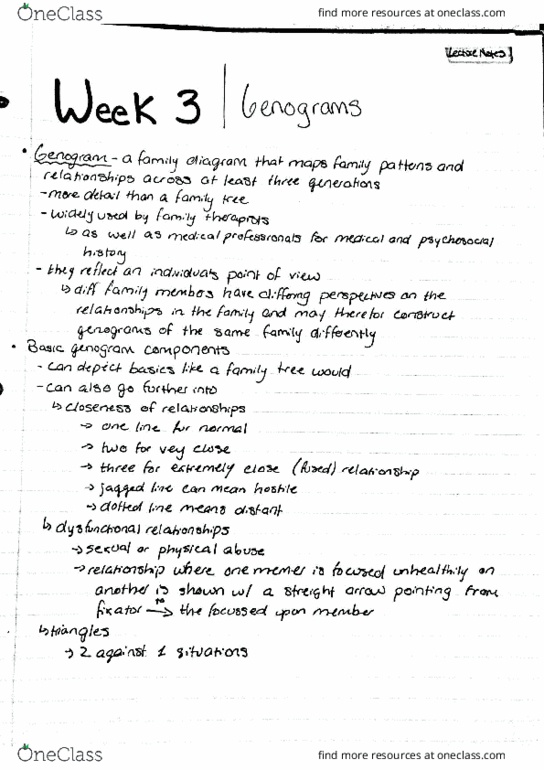 OneClass
find more resources at oneclass.com
Lecture Notes
Week 3 | Genograms
• Genogram - a family diagram that maps family pattons and
relationships across at least three generations
- more detail than a family tree
- widely used by family therapists
↳ as well as medical professionals for medical and psychosocial
history
- they reflect an individuals point of view
↳ diff family members have differing perspectives on the
relationships in the family and may therefor construct
genograms of the same family differently
• Basic genogram components
- can depict basics like a family tree would
- can also go further into
↳ closeness of relationships
→ one line for normal
→ two for vey close
→ three for extremely close (fused) relationship
→ jagged line can mean hostile
→ dotted line means distant
↳ dysfunctional relationships
→ sexual or physical abuse
→ relationship where one memer is focused unhealthily on
another is shown w/ a streight arrow pointing from
fixator to → the focussed upon member
↳ triangles
→ 2 against 1 situations
OneClass
find more resources at oneclass.com